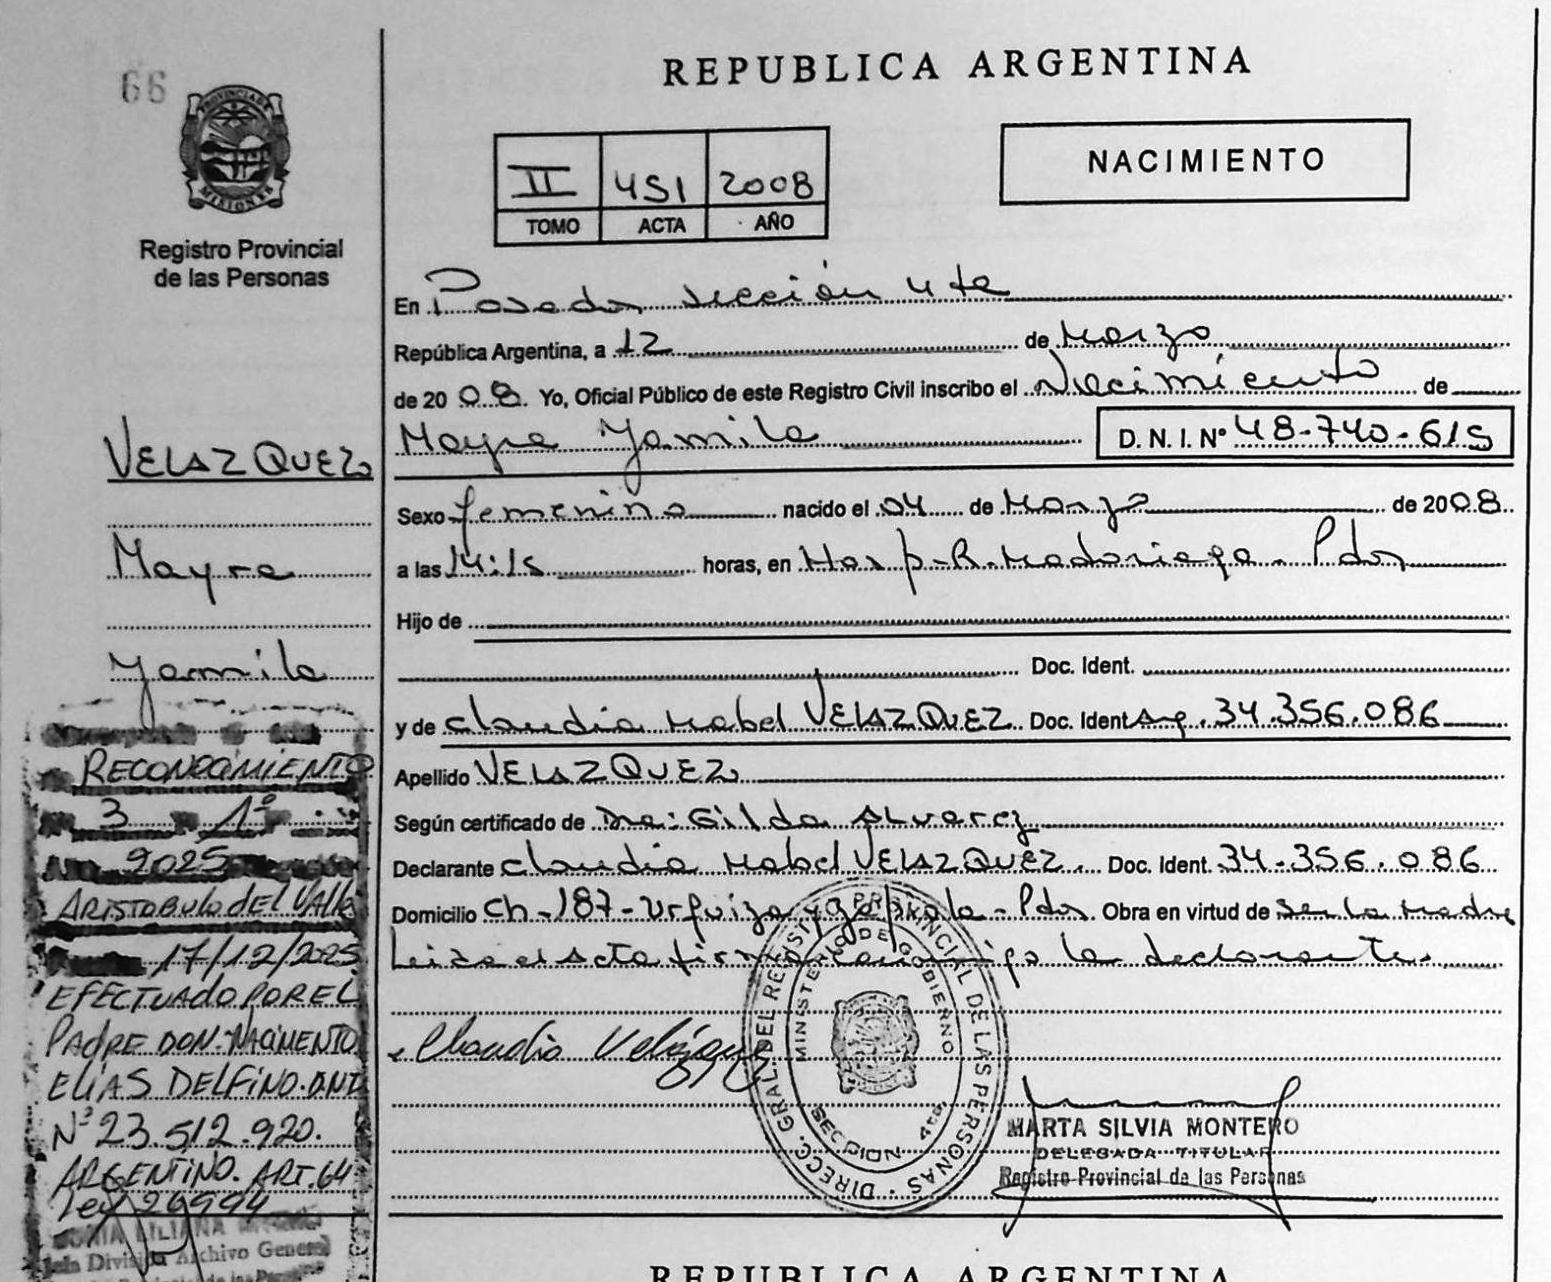 66
PROVINCIA DE
MISIONES
Registro Provincial
de las Personas
REPUBLICA ARGENTINA
II 451 2008
TOMO ACTA AÑO
NACIMIENTO
En Posadas sección 4ta
República Argentina, a 12 de Marzo
de 2008. Yo, Oficial Público de este Registro Civil inscribo el Nacimiento de
Mayra Yamila D.N.I. Nº 48-740-615
Sexo femenino nacido el 04 de Marzo de 2008
a las 14:15 horas, en Hosp-R.Madariaga-Pdas
Hijo de
Doc. Ident.
y de Claudia Mabel VELAZQUEZ Doc. Ident Arg. 34.356.086
Apellido VELAZQUEZ
Según certificado de Dra: Gilda ALvarez
Declarante Claudia Mabel VELAZQUEZ. Doc. Ident. 34-356.086
Domicilio Ch-187-Urquiza y Zapiola-Pdas Obra en virtud de Ser la Madre
Leida el Acta firma conmigo la declarante.
Claudia Velázquez
DIRECC. GRAL. DEL REGISTRO PROVINCIAL DE LAS PERSONAS
MINISTERIO DE GOBIERNO
SECCION 4ta
MARTA SILVIA MONTERO
DELEGADA TITULAR
Registro Provincial de las Personas
VELAZQUEZ
Mayra
Yamila
RECONOCIMIENTO
3 1º
2025
ARISTOBULO DEL VAlle
17/12/2025
EFECTUADO POR EL
PADRE DON. NACIMENTO
ELIAS DELFINO. DNI
Nº 23.512.920.
ARGENTINO. ART. 64
Ley 26994
LILIANA
Jefa División Archivo General
REPUBLICA ARGENTINA